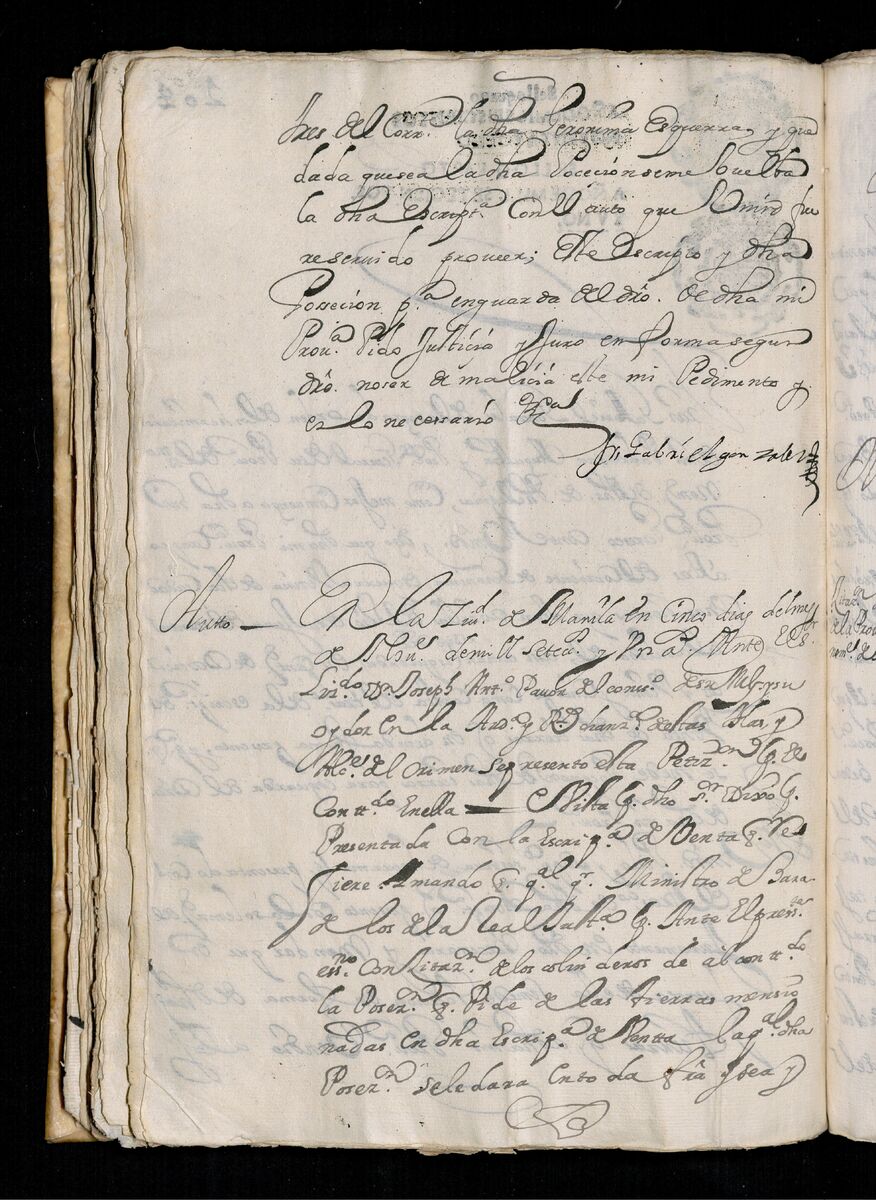 tres del Corr.te la dha Geronima Esguerra, y que
dada que sea la dha Poceción se me buelba
la dha Escript.a Con el auto que Vmrd fue
re seruido proueer; este Escripto y dha
Poseecion p.a en guarda del dro. de dha mi
Prou.a Pido Justicia y Juro en forma segun
dro. no ser de malicia este mi Pedimento y
en lo necessario &.a
fr. Gabriel gonzales
Autto — En la Ziud. de Manila en Cinco dias del mes
de Mill setec.s y Vn a.s Ante El S.or
Liz.do D.n Joseph Ant.o Pauon del cons.o de su Mag. y su
oydor en la Aud.a y R.l chanz.a de estas Yslas y
Alc.e del Crimen se presento esta Petiz.on q. de
Contt.do En ella — e Vista q. dho s.r Dixo q.
Presentada Con la Escrip.a de Benta q. re
fiere Mando q. q.l q.r Ministro de Bara
de los de la Real Justt.a q. Ante El press.te
ess.no Con Zitaz.n de los colinderos de al contt.do
la Posez.n q. Pide de las tierras mensio
nadas en dha Escrip.a de Ventta la q.al dha
Posez.n se le dara en toda fr.a y sea y